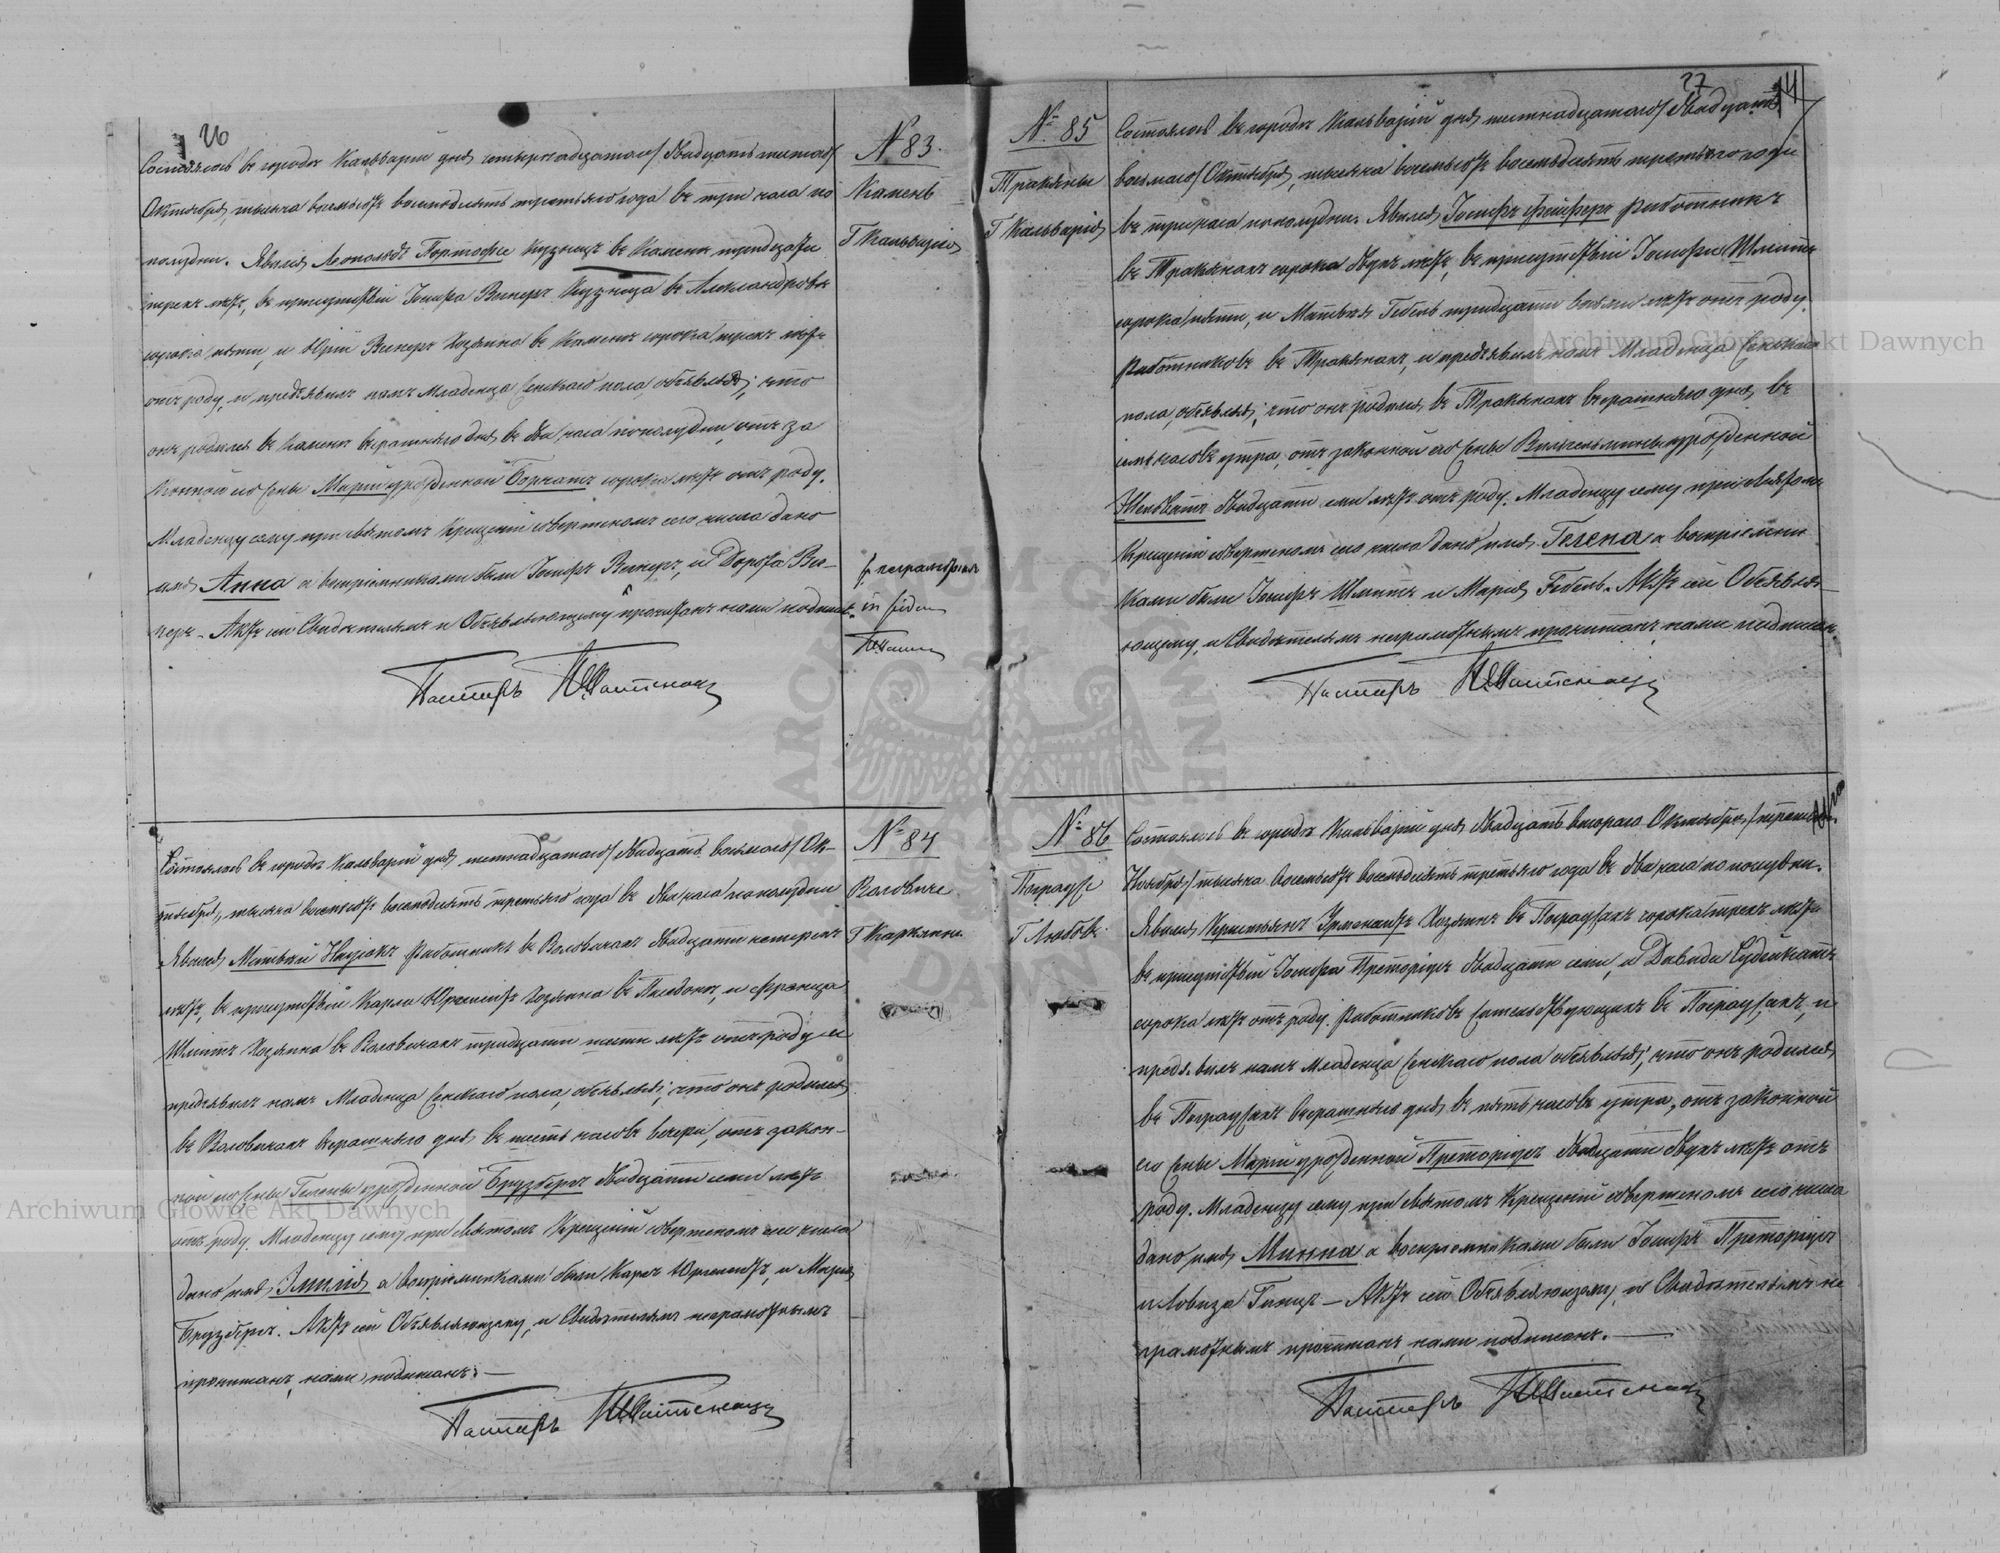 26
№ 83.
Камень
Г Кальварія
Состоялось въ городѣ Кальваріи дня четырнадцатаго/двадцать шестаго/
Октября, тысяча восемьсотъ восемьдесятъ третьяго года въ три часа по
полудни. Явился Леопольдъ кузнецъ въ Каменѣ тридцати
трехъ лѣтъ, въ присутствіи Іосифа Винеръ кузнеца въ Александровѣ
сорока пяти, и Юрій Винеръ хозяина въ Каменѣ сорока трехъ лѣтъ
отъ роду, и предъявилъ намъ младенца женскаго пола, объявляя; что
онъ родился въ Каменѣ вчерашняго дня въ два часа пополудни, отъ за
конной его жены Маріи урожденной сорока лѣтъ отъ роду.
Младенцу сему при святомъ крещеніи совершеномъ сего числа дано
имя Анна а воспріемниками были Іосифъ Винеръ, и Дорота Ви-
неръ - Актъ сей Свидѣтелямъ и Объявляющему прочитанъ нами подписанъ.
неграмотнымъ
in fidem
Пасторъ
№ 84
Воловиче
Г Каркляны
Состоялось въ городѣ Кальваріи дня шестнадцатаго/двадцать восьмаго/Ок-
тября, тысяча восемьсотъ восемьдесятъ третьяго года въ два часа пополудни
Явился Матвѣй работникъ въ Воловичахъ двадцати четырехъ
лѣтъ, въ присутствіи Карла Юргелейтъ хозяина въ и Франца
Шмитъ хозяина въ Воловичахъ тридцати шести лѣтъ отъ роду и
предъявилъ намъ младенца женскаго пола, объявляя; что онъ родился
въ Воловичахъ вчерашняго дня въ шесть часовъ вечера, отъ закон-
ной его жены Гелены урожденной Брузбергъ двадцати семи лѣтъ
отъ роду. Младенцу сему при святомъ крещеніи совершеномъ сего числа
дано имя Эмилія а воспріемниками были Карлъ Юргелейтъ, и Марія
Брузбергъ. Актъ сей Объявляющему, и Свидѣтелямъ неграмотнымъ
прочитанъ, нами подписанъ. —
Пасторъ
27
№ 85
Тракяны
Г Кальварія
Состоялось въ городѣ Кальваріи дня шестнадцатаго/двадцать
восьмаго/Октября, тысяча восемьсотъ восемьдесятъ третьяго года
въ три часа пополудни. Явился Іосифъ Фейферъ работникъ
въ Тракянахъ сорока двухъ лѣтъ, въ присутствіи Іосифа Шмитъ
сорока пяти, и Матвѣя Гебель тридцати восьми лѣтъ отъ роду.
работниковъ въ Тракянахъ, и предъявилъ намъ младенца женскаго
пола, объявляя; что онъ родился въ Тракянахъ вчерашняго дня въ
семь часовъ утра, отъ законной его жены Вильгельмины урожденной
двадцати семи лѣтъ отъ роду. Младенцу сему при святомъ
крещеніи совершеномъ сего числа дано имя Гелена а воспріемни
ками были Іосифъ Шмитъ и Марія Гебель. Актъ сей Объявля-
ющему, и Свидѣтелямъ неграмотнымъ прочитанъ, нами подписанъ.
Пасторъ
№ 86
Г Любовъ.
Состоялось въ городѣ Кальваріи дня двадцать втораго Октября, /третьяго
Ноября/ тысяча восемьсотъ восемьдесятъ третьяго года въ два часа по полудни.
Явился Христьянъ хозяинъ въ сорока трехъ лѣтъ
въ присутствіи Іосифа Преторіусъ двадцати семи, и Давида
сорока лѣтъ отъ роду. работниковъ жительствующихъ въ и
предъявилъ намъ младенца женскаго пола объявляя; что онъ родился
въ вчерашняго дня въ пять часовъ утра, отъ законной
его жены Маріи урожденной Преторіусъ двадцати двухъ лѣтъ отъ
роду. Младенцу сему при святомъ крещеніи совершеномъ сего числа
дано имя Минна а воспріемниками были Іосифъ Преторіусъ
и Ловиза — Актъ сей Объявляющему, и Свидѣтелямъ не
грамотнымъ прочитанъ, нами подписанъ. —
Пасторъ
Archiwum Główne Akt Dawnych
Archiwum Główne Akt Dawnych